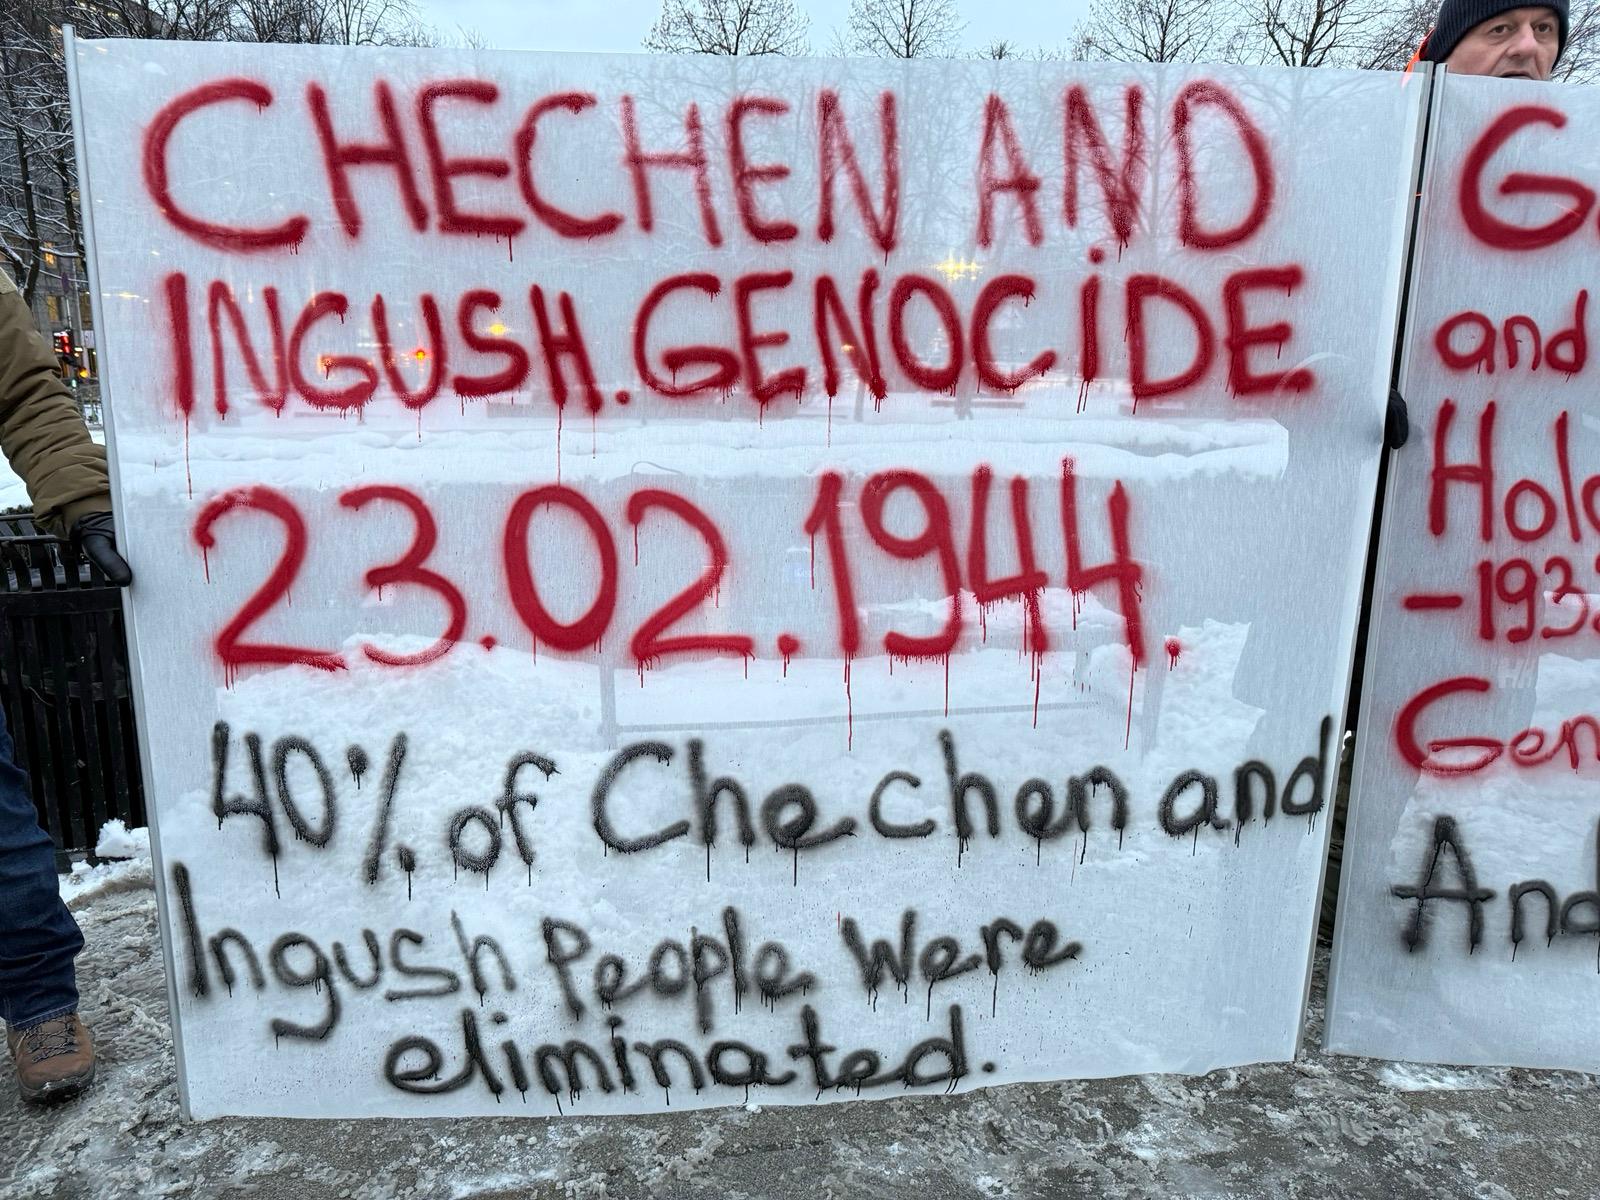 CHECHEN AND
INGUSH. GENOCIDE
23.02.1944.
40% of Chechen and
Ingush People Were
eliminated.
and